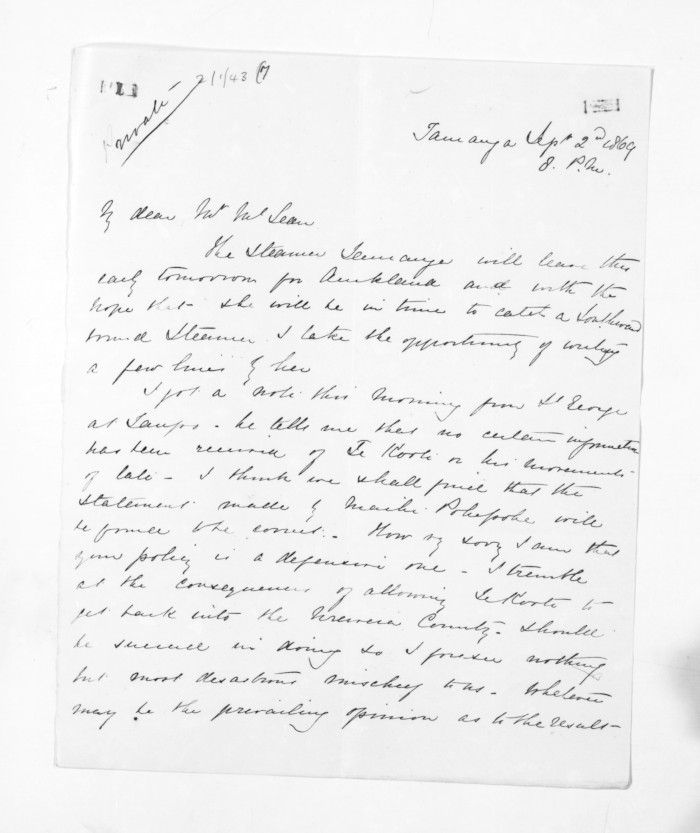 Private
Tauranga Sept 2nd 1869
8. P.M.
My dear Mr McLean
The Steamer Tauranga will leave this
early tomorrow for Auckland and with the
hope that she will be in time to catch a Southward
bound Steamer I take the opportunity of writing
a few lines by her
I got a note this morning from St George
at Taupo - he tells me that no certain information
has been received of Te Kooti or his movements
of late - I think we shall find that the
statement made by Pokepoke will
be found the correct - How very sorry I am that
your policy is a defensive one - I tremble
at the consequences of allowing Te Kooti to
get back into the Urewera Country - should
he succeed in doing so I foresee nothing
but most desastrous mischief to us - Whatever
may be the prevailing opinion as to the results -